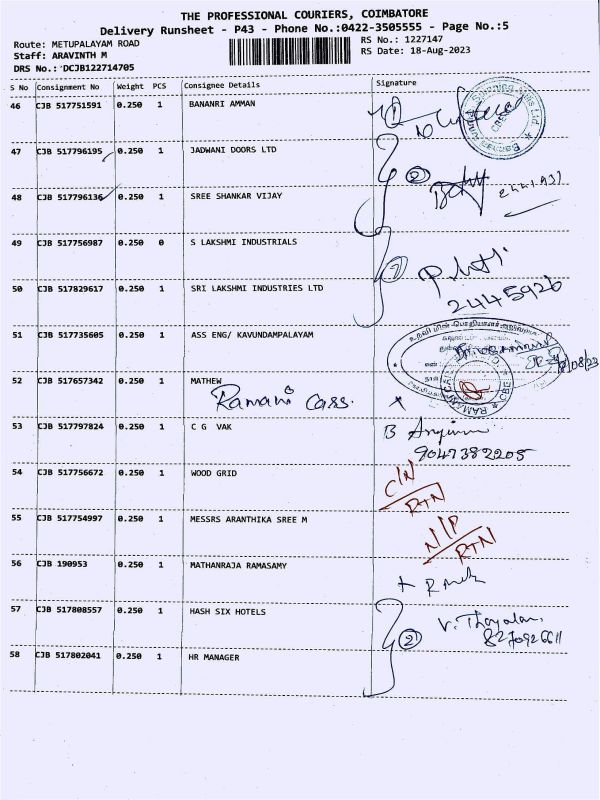 THE PROFESSIONAL COURIERS, COIMBATORE
Delivery Runsheet - P43 - Phone No.:0422-3505555 - Page No.:5
Route: METUPALAYAM ROAD
Staff: ARAVINTH M
DRS No.: DCJB122714705
RS No.: 1227147
RS Date: 18-Aug-2023
S No Consignment No Weight PCS Consignee Details Signature
46 CJB 517751591 0.250 1 BANANRI AMMAN
47 CJB 517796195 0.250 1 JADWANI DOORS LTD
48 CJB 517796136 0.250 1 SREE SHANKAR VIJAY
49 CJB 517756987 0.250 0 S LAKSHMI INDUSTRIALS
50 CJB 517829617 0.250 1 SRI LAKSHMI INDUSTRIES LTD
2445926
51 CJB 517735605 0.250 1 ASS ENG/ KAVUNDAMPALAYAM
52 CJB 517657342 0.250 1 MATHEW
Ramani Cass.
53 CJB 517797824 0.250 1 C G VAK
9047382205
54 CJB 517756672 0.250 1 WOOD GRID
C/N
RTN
55 CJB 517754997 0.250 1 MESSRS ARANTHIKA SREE M
N/P
RTN
56 CJB 190953 0.250 1 MATHANRAJA RAMASAMY
57 CJB 517808557 0.250 1 HASH SIX HOTELS
V. Thayalan,
58 CJB 517802041 0.250 1 HR MANAGER